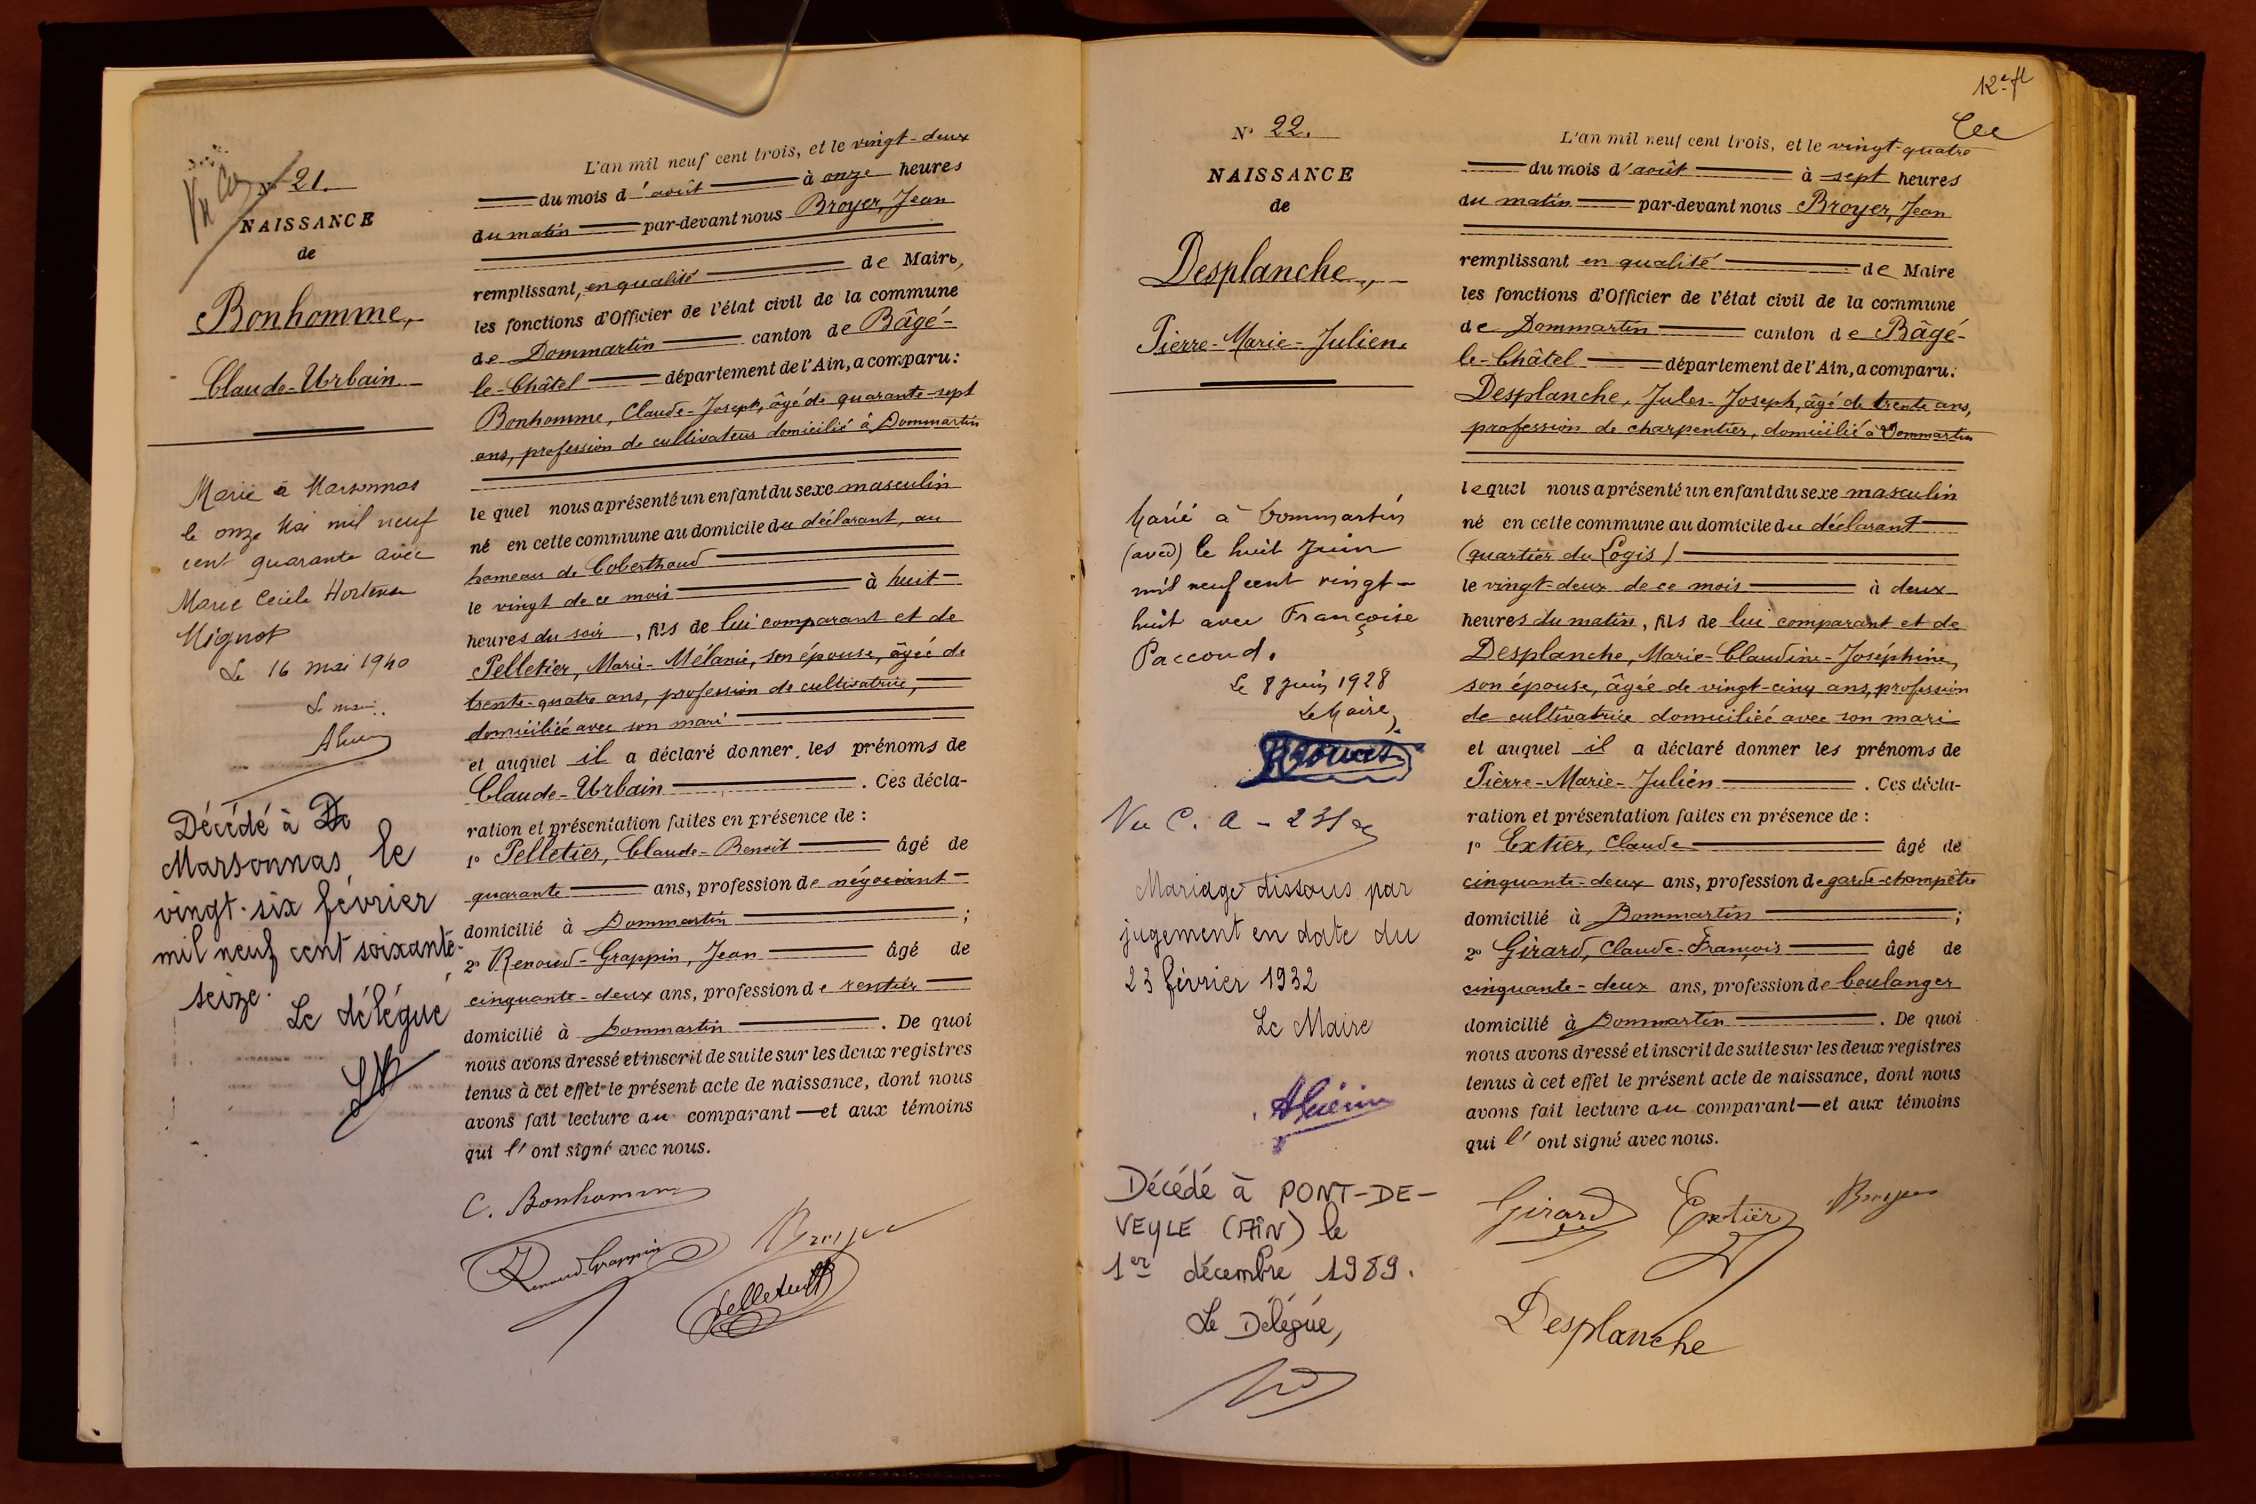 N° 21.
NAISSANCE
de
Bonhomme,
Claude-Urbain
Marié à Marsonnas
le onze Mai mil neuf
cent quarante avec
Marie Cécile Hortense
Mignot
Le 16 mai 1940
Le maire
Décédé à
Marsonnas, le
vingt-six février
mil neuf cent soixante-
seize.
Le délégué
L'an mil neuf cent trois, et le vingt-deux
du mois d'août à onze heures
du matin par-devant nous Broyer, Jean
remplissant, en qualité de Maire,
les fonctions d'Officier de l'état civil de la commune
de Dommartin canton de Bâgé-
le-Châtel département de l'Ain, a comparu:
Bonhomme, Claude-Joseph, âgé de quarante-sept
ans, profession de cultivateur domicilié à Dommartin
lequel nous a présenté un enfant du sexe masculin
né en cette commune au domicile du déclarant, au
hameau de Coberthoud
le vingt de ce mois à huit
heures du soir, fils de lui comparant et de
Pelletier, Marie-Mélanie, son épouse, âgée de
trente-quatre ans, profession de cultivatrice,
domiciliée avec son mari
et auquel il a déclaré donner les prénoms de
Claude-Urbain. Ces décla-
ration et présentation faites en présence de :
1° Pelletier, Claude-Benoît âgé de
quarante ans, profession de négociant
domicilié à Dommartin ;
2° Renoud-Grappin, Jean âgé de
cinquante-deux ans, profession de rentier
domicilié à Dommartin. De quoi
nous avons dressé et inscrit de suite sur les deux registres
tenus à cet effet le présent acte de naissance, dont nous
avons fait lecture au comparant—et aux témoins
qui l'ont signé avec nous.
C. Bonhomme
Renoud-Grappin Broyer
Pelletier
12e ft
N° 22.
NAISSANCE
de
Desplanche,
Pierre-Marie-Julien.
Marié à Dommartin
(avec) le huit Juin
mil neuf cent vingt-
huit avec Françoise
Paccoud.
Le 8 Juin 1928
Le Maire,
Mariage dissous par
jugement en date du
23 février 1932
Le Maire
Décédé à PONT-DE-
VEYLE (AIN) le
1er décembre 1989.
Le Délégué,
L'an mil neuf cent trois, et le vingt-quatre
du mois d'août à sept heures
du matin par-devant nous Broyer, Jean
remplissant en qualité de Maire
les fonctions d'Officier de l'état civil de la commune
de Dommartin canton de Bâgé-
le-Châtel département de l'Ain, a comparu:
Desplanche, Jules-Joseph, âgé de trente ans,
profession de charpentier, domicilié à Dommartin
lequel nous a présenté un enfant du sexe masculin
né en cette commune au domicile du déclarant
(quartier du Logis)
le vingt-deux de ce mois à deux
heures du matin, fils de lui comparant et de
Desplanche, Marie-Claudine-Joséphine,
son épouse, âgée de vingt-cinq ans, profession
de cultivatrice domiciliée avec son mari
et auquel il a déclaré donner les prénoms de
Pierre-Marie-Julien. Ces décla-
ration et présentation faites en présence de :
1° Extier, Claude âgé de
cinquante-deux ans, profession de garde-champêtre
domicilié à Dommartin ;
2° Girard, Claude-François âgé de
cinquante-deux ans, profession de boulanger
domicilié à Dommartin. De quoi
nous avons dressé et inscrit de suite sur les deux registres
tenus à cet effet le présent acte de naissance, dont nous
avons fait lecture au comparant—et aux témoins
qui l'ont signé avec nous.
Girard Extier Broyer
Desplanche